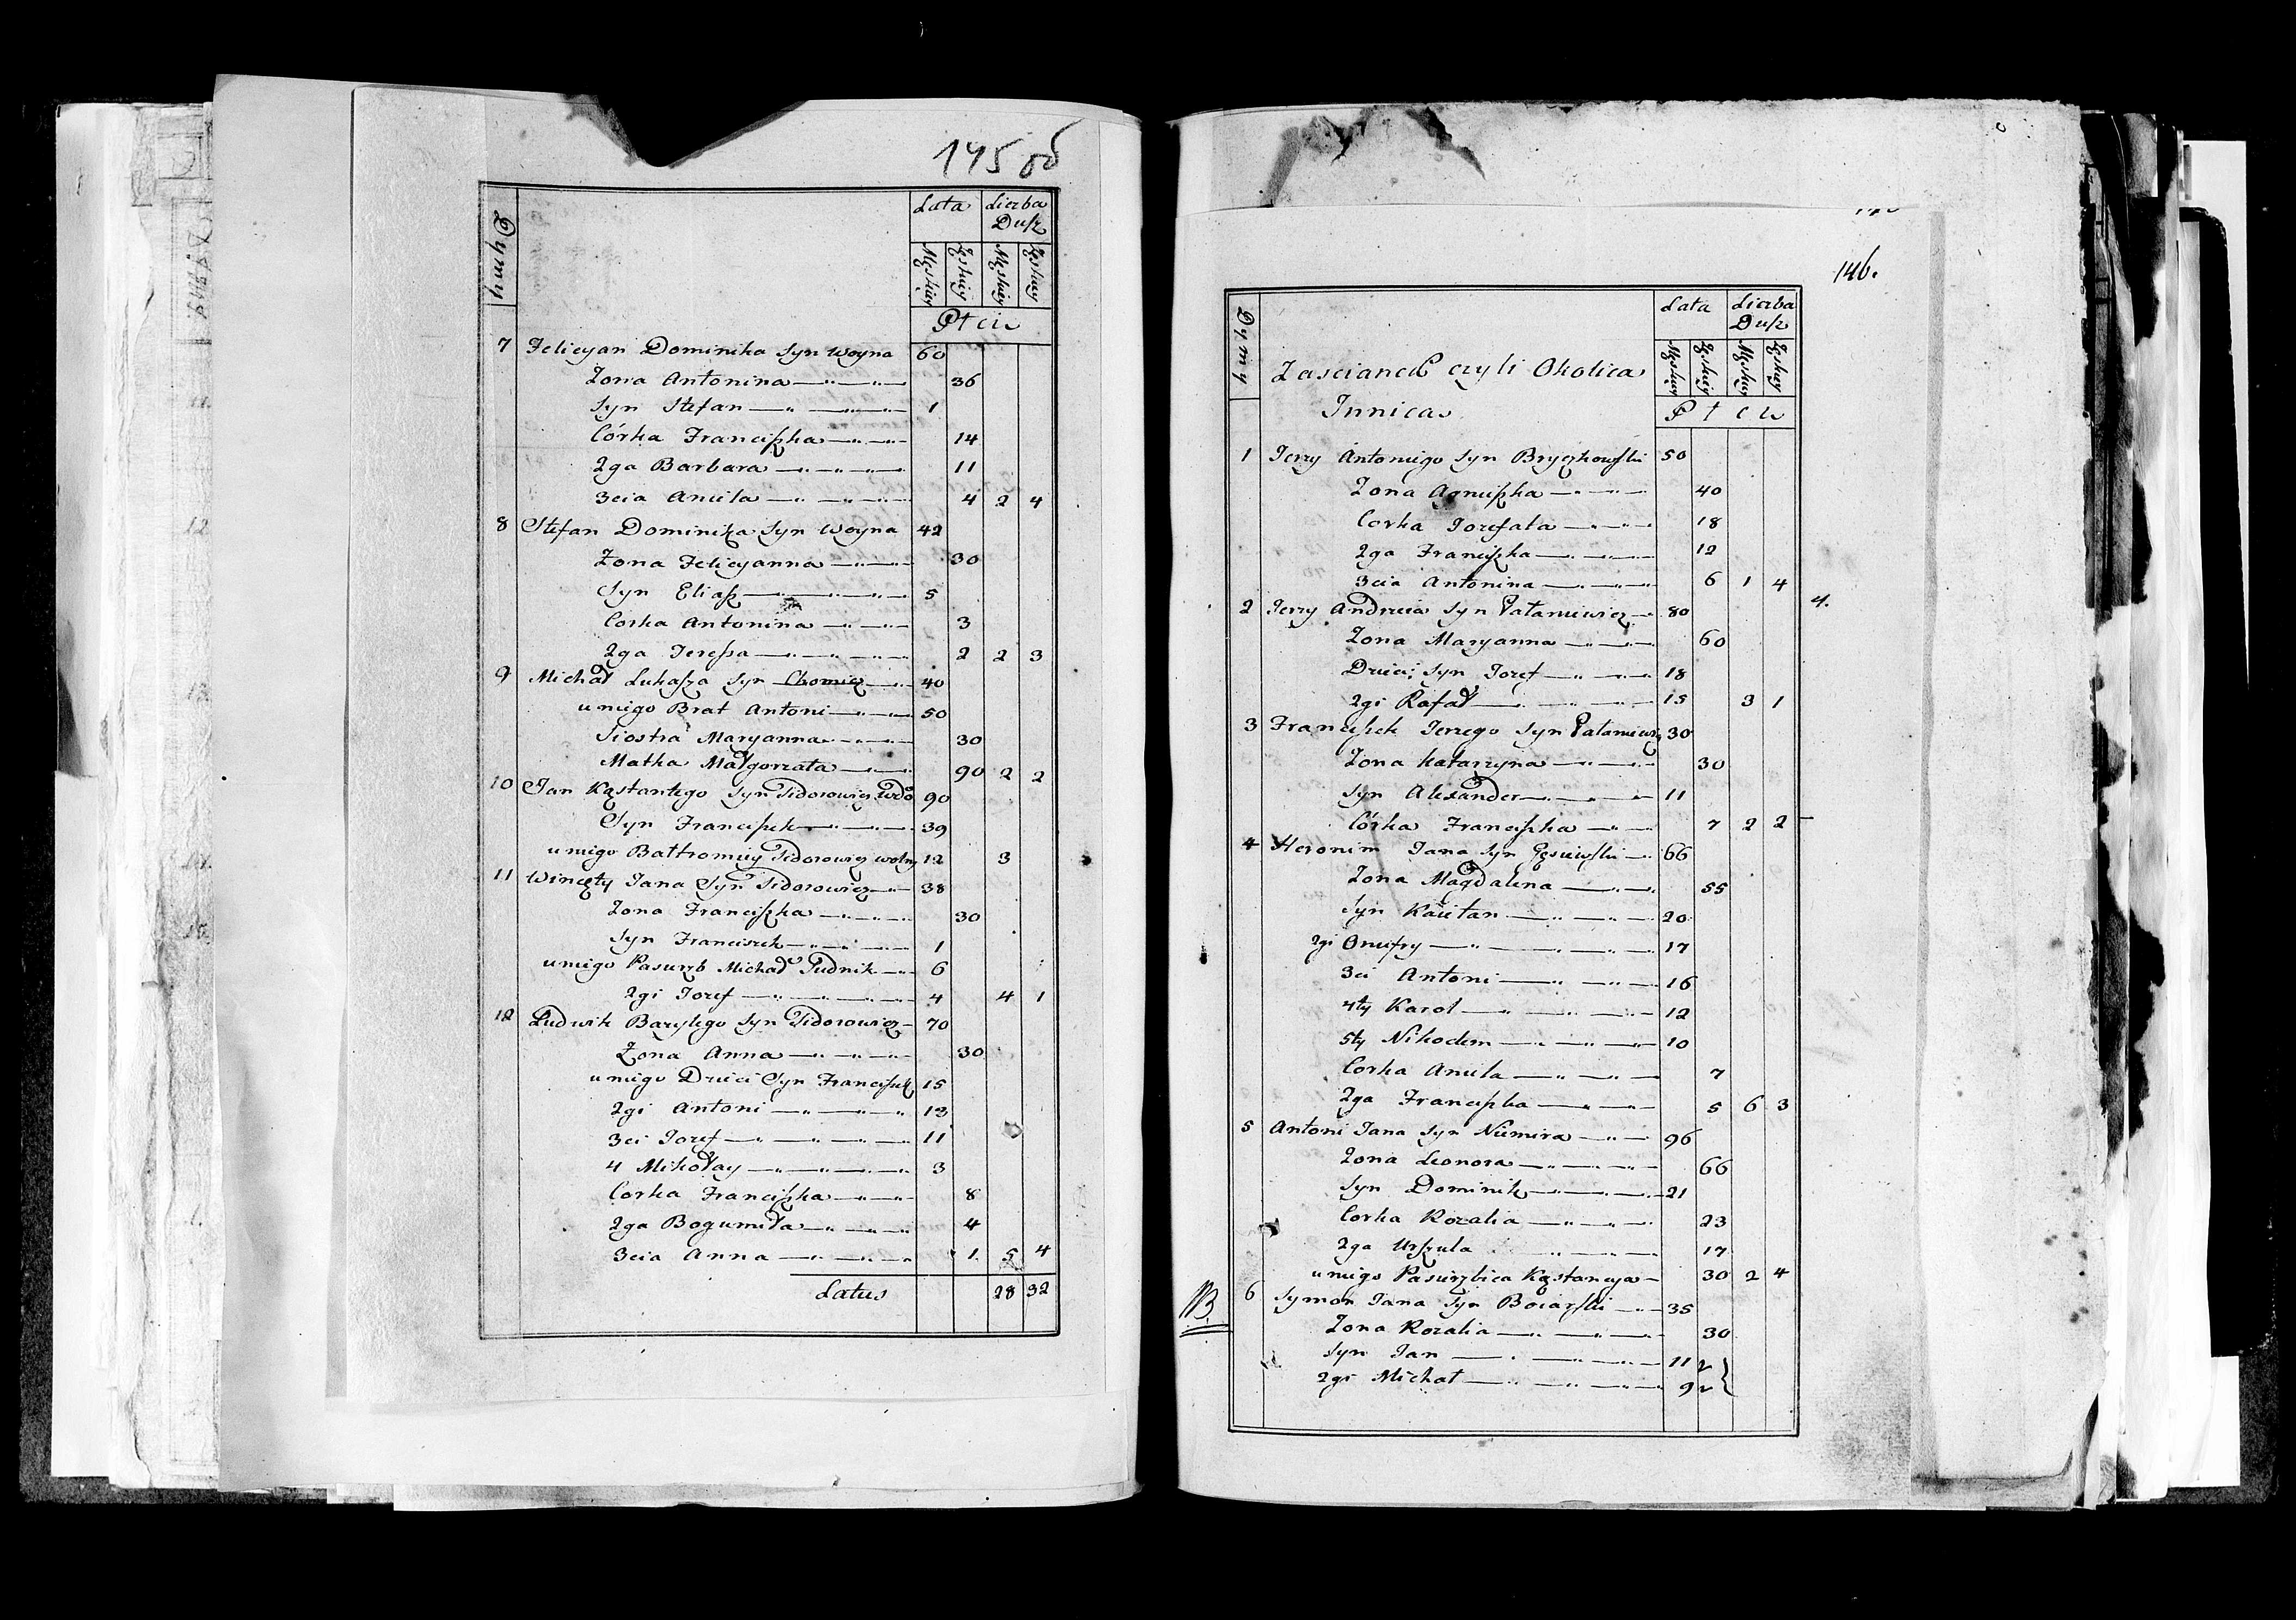 145 об
Dymy
Lata Liczba Dusz
Męskiey Żeńskiey Męskiey Żeńskiey
Płci
7 Felicyan Dominika Syn Woyna 60
Żona Antonina 36
Syn Stefan 1
Córka Franciszka 14
2ga Barbara 11
3cia Aniela 4 2 4
8 Stefan Dominika Syn Woyna 42
Żona Felicyanna 30
Syn Eliasz 5
Corka Antonina 3
2ga Teressa 2 2 3
9 Michał Łukasza Syn Chomicz 40
u niego Brat Antoni 50
Siostra Maryanna 30
Matka Małgorzata 90 2 2
10 Jan Kąstantego Syn Sidorowicz Wdo 90
Syn Franciszek 39
u niego Bałtromiey Sidorowicz wolny 12 3
11 Wincęty Jana Syn Sidorowicz 38
Żona Franciszka 30
Syn Franciszek 1
u niego Pasierzb Michał Pudnik 6
2gi Jozef 4 4 1
12 Ludwik Bazylego Syn Sidorowicz 70
Żona Anna 30
u niego Dzieci Syn Franciszek 15
2gi Antoni 13
3ci Jozef 11
4 Mikołay 3
Corka Franciszka 8
2ga Bogumiła 4
3cia Anna 1 5 4
Latus 28 32
146.
Dymy
Lata Liczba Dusz
Męskiey Żeńskiey Męskiey Żeńskiey
Zascianek czyli Okolica
Płci
Innica
1 Jerzy Antoniego Syn Bryczkowski 50
Żona Agnieszka 40
Corka Jozefata 18
2ga Franciszka 12
3cia Antonina 6 1 4
2 Jerzy Andrzeia Syn Pataniewicz 80 4.
Żona Maryanna 60
Dzieci; Syn Jozef 18
2gi Rafał 15 3 1
3 Franciszek Jerzego Syn Pataniewicz 30
Żona Katarzyna 30
Syn Alexander 11
Córka Franciszka 7 2 2
4 Heronim Jana Syn Gęsiewski 66
Żona Magdalena 55
Syn Kaietan 20
2gi Onufry 17
3ci Antoni 16
4ty Karol 12
5ty Nikodem 10
Corka Aniela 7
2ga Franciszka 5 6 3
5 Antoni Jana Syn Niemira 96
Żona Leonora 66
Syn Dominik 21
Corka Rozalia 23
2ga Urszula 17
u niego Pasierzbica Kąstancya 30 2 4
6 Symon Jana Syn Boiarski 35
Żona Rozalia 30
Syn Jan 11
2gi Michał 9